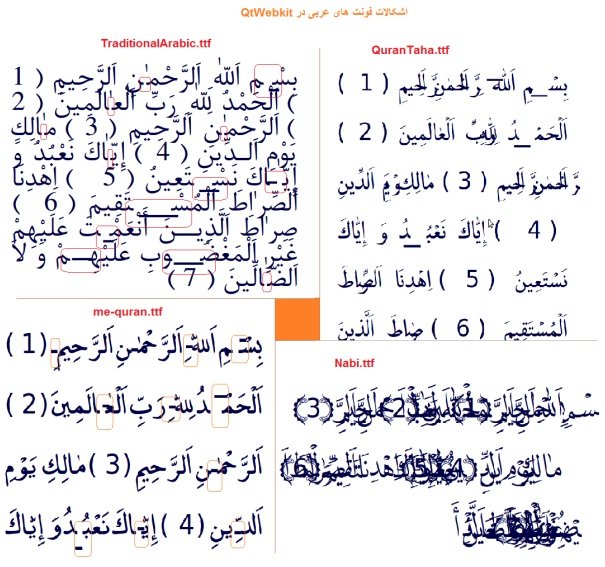 اشکالات فونت های عربی در QtWebkit
TraditionalArabic.ttf
بِسْمِ اَللّٰهِ اَلرَّحْمٰنِ اَلرَّحِيمِ ( 1
) اَلْحَمْدُ لِلّٰهِ رَبِّ اَلْعٰالَمِينَ ( 2
) اَلرَّحْمٰنِ اَلرَّحِيمِ ( 3 ) مٰالِكِ
يَوْمِ اَلدِّينِ ( 4 ) إِيّٰاكَ نَعْبُدُ وَ
إِيّٰاكَ نَسْتَعِينُ ( 5 ) اِهْدِنَا
اَلصِّرٰاطَ اَلْمُسْتَقِيمَ ( 6 )
صِرٰاطَ اَلَّذِينَ أَنْعَمْتَ عَلَيْهِمْ
غَيْرِ اَلْمَغْضُوبِ عَلَيْهِمْ وَ لاَ
اَلضّٰالِّينَ ( 7 )
QuranTaha.ttf
بِسْمِ اَللّٰهِ اَلرَّحْمٰنِ اَلرَّحِيمِ ( 1 )
اَلْحَمْدُ لِلّٰهِ رَبِّ اَلْعٰالَمِينَ ( 2 )
اَلرَّحْمٰنِ اَلرَّحِيمِ ( 3 ) مٰالِكِ يَوْمِ اَلدِّينِ
( 4 ) إِيّٰاكَ نَعْبُدُ وَ إِيّٰاكَ
نَسْتَعِينُ ( 5 ) اِهْدِنَا اَلصِّرٰاطَ
اَلْمُسْتَقِيمَ ( 6 ) صِرٰاطَ اَلَّذِينَ
me-quran.ttf
بِسْمِ اَللّٰهِ اَلرَّحْمٰنِ اَلرَّحِيمِ ( 1 )
اَلْحَمْدُ لِلّٰهِ رَبِّ اَلْعٰالَمِينَ ( 2 )
اَلرَّحْمٰنِ اَلرَّحِيمِ ( 3 ) مٰالِكِ يَوْمِ
اَلدِّينِ ( 4 ) إِيّٰاكَ نَعْبُدُ وَ إِيّٰاكَ
Nabi.ttf